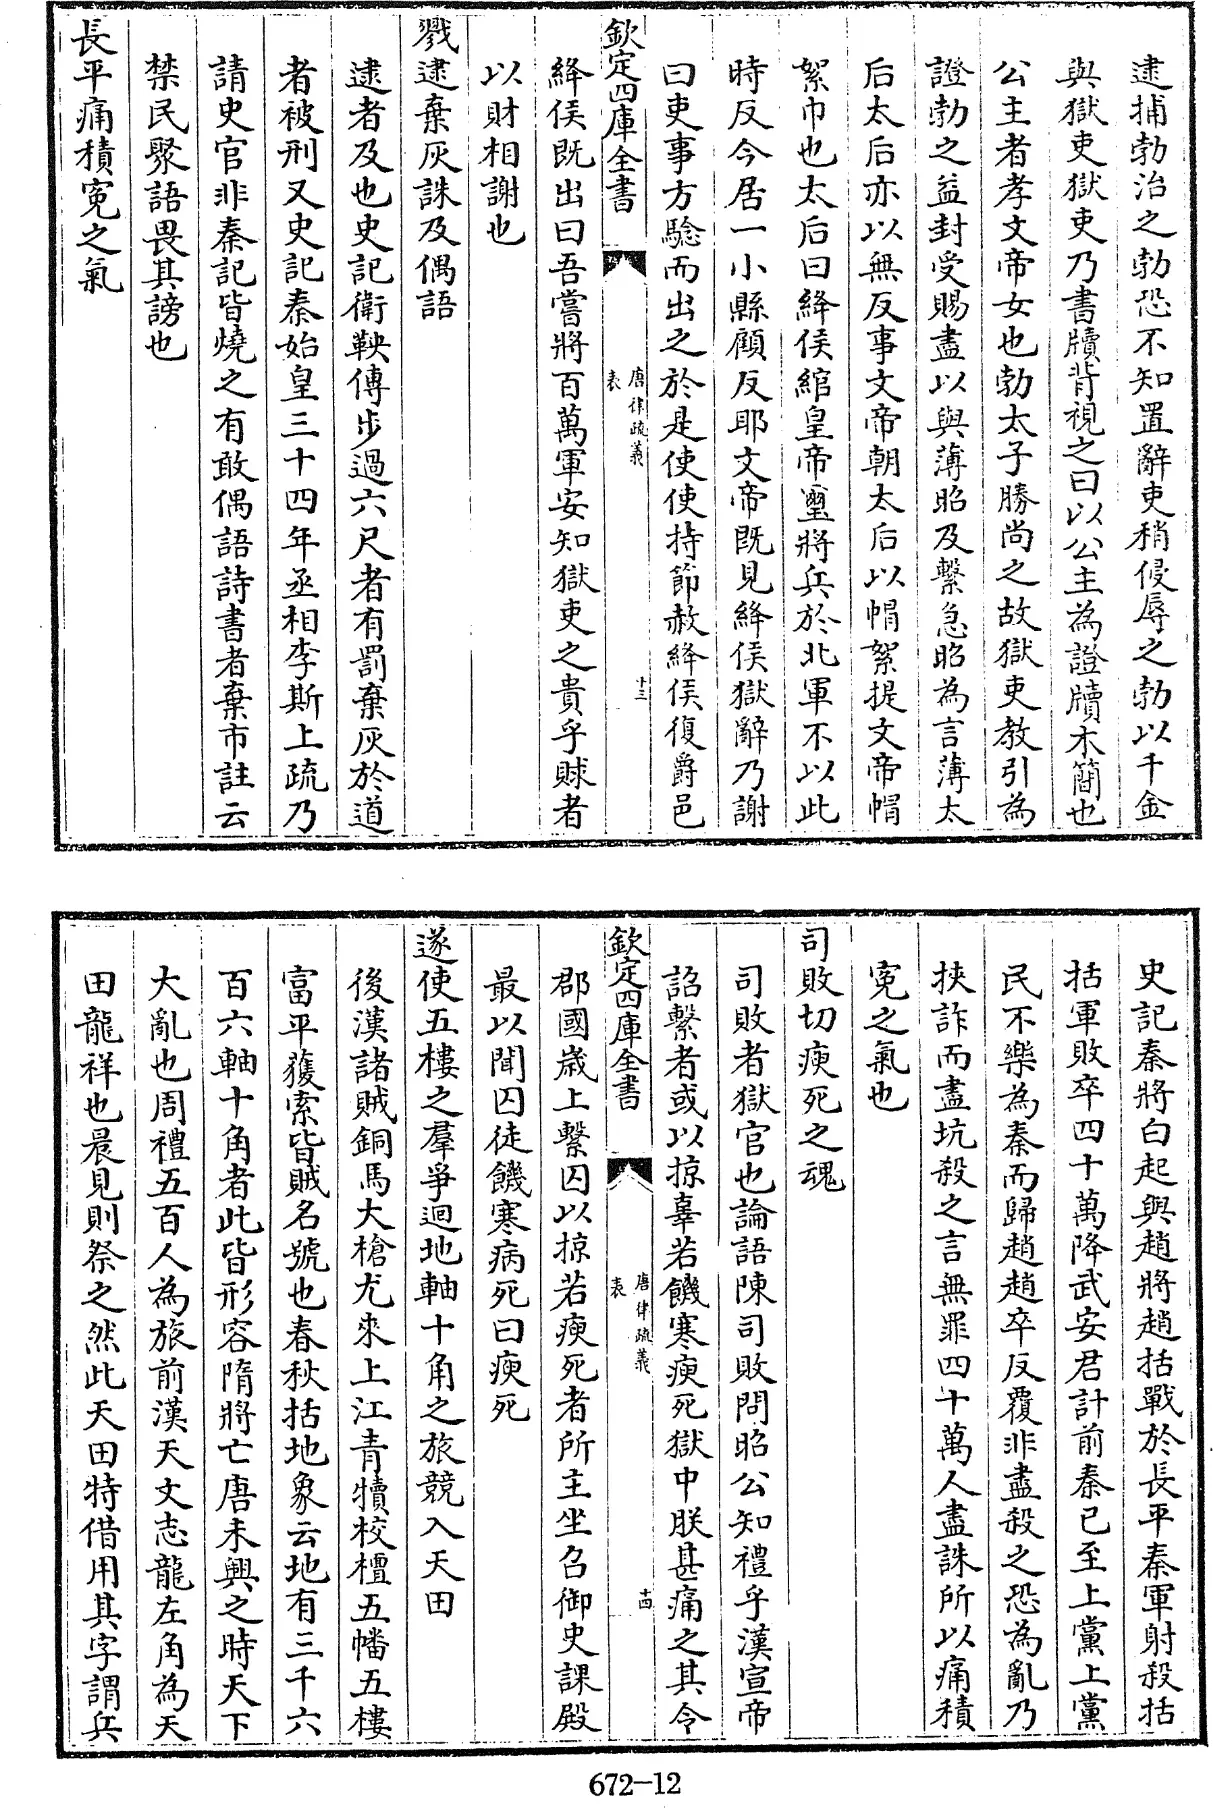 逮捕勃治之勃恐不知置辭吏稍侵辱之勃以千金
與獄吏獄吏乃書牘背視之曰以公主為證牘木簡也
公主者孝文帝女也勃太子勝尚之故獄吏教引為
證勃之益封受賜盡以與薄昭及繫急昭為言薄太
后太后亦以無反事文帝朝太后以帽絮提文帝帽
絮巾也太后曰絳侯綰皇帝璽將兵於北軍不以此
時反今居一小縣顧反耶文帝既見絳侯獄辭乃謝
曰吏事方驗而出之於是使使持節赦絳侯復爵邑
欽定四庫全書
唐律疏義
表
十三
絳侯既出曰吾嘗將百萬軍安知獄吏之貴乎賕者
以財相謝也
戮逮棄灰誅及偶語
逮者及也史記衛鞅傳步過六尺者有罰棄灰於道
者被刑又史記秦始皇三十四年丞相李斯上疏乃
請史官非秦記皆燒之有敢偶語詩書者棄市註云
禁民聚語畏其謗也
長平痛積寃之氣
史記秦將白起與趙將趙括戰於長平秦軍射殺括
括軍敗卒四十萬降武安君計前秦已至上黨上黨
民不樂為秦而歸趙趙卒反覆非盡殺之恐為亂乃
挾詐而盡坑殺之言無罪四十萬人盡誅所以痛積
寃之氣也
司敗切瘐死之魂
司敗者獄官也論語陳司敗問昭公知禮乎漢宣帝
詔繫者或以掠辜若饑寒瘐死獄中朕甚痛之其令
欽定四庫全書
唐律疏義
表
十四
郡國歲上繫囚以掠若瘐死者所主坐名御史課殿
最以聞囚徒饑寒病死曰瘐死
遂使五樓之羣爭迴地軸十角之旅競入天田
後漢諸賊銅馬大槍尤來上江青犢校檀五幡五樓
富平獲索皆賊名號也春秋括地象云地有三千六
百六軸十角者此皆形容隋將亡唐未興之時天下
大亂也周禮五百人為旅前漢天文志龍左角為天
田龍祥也晨見則祭之然此天田特借用其字謂兵
672-12